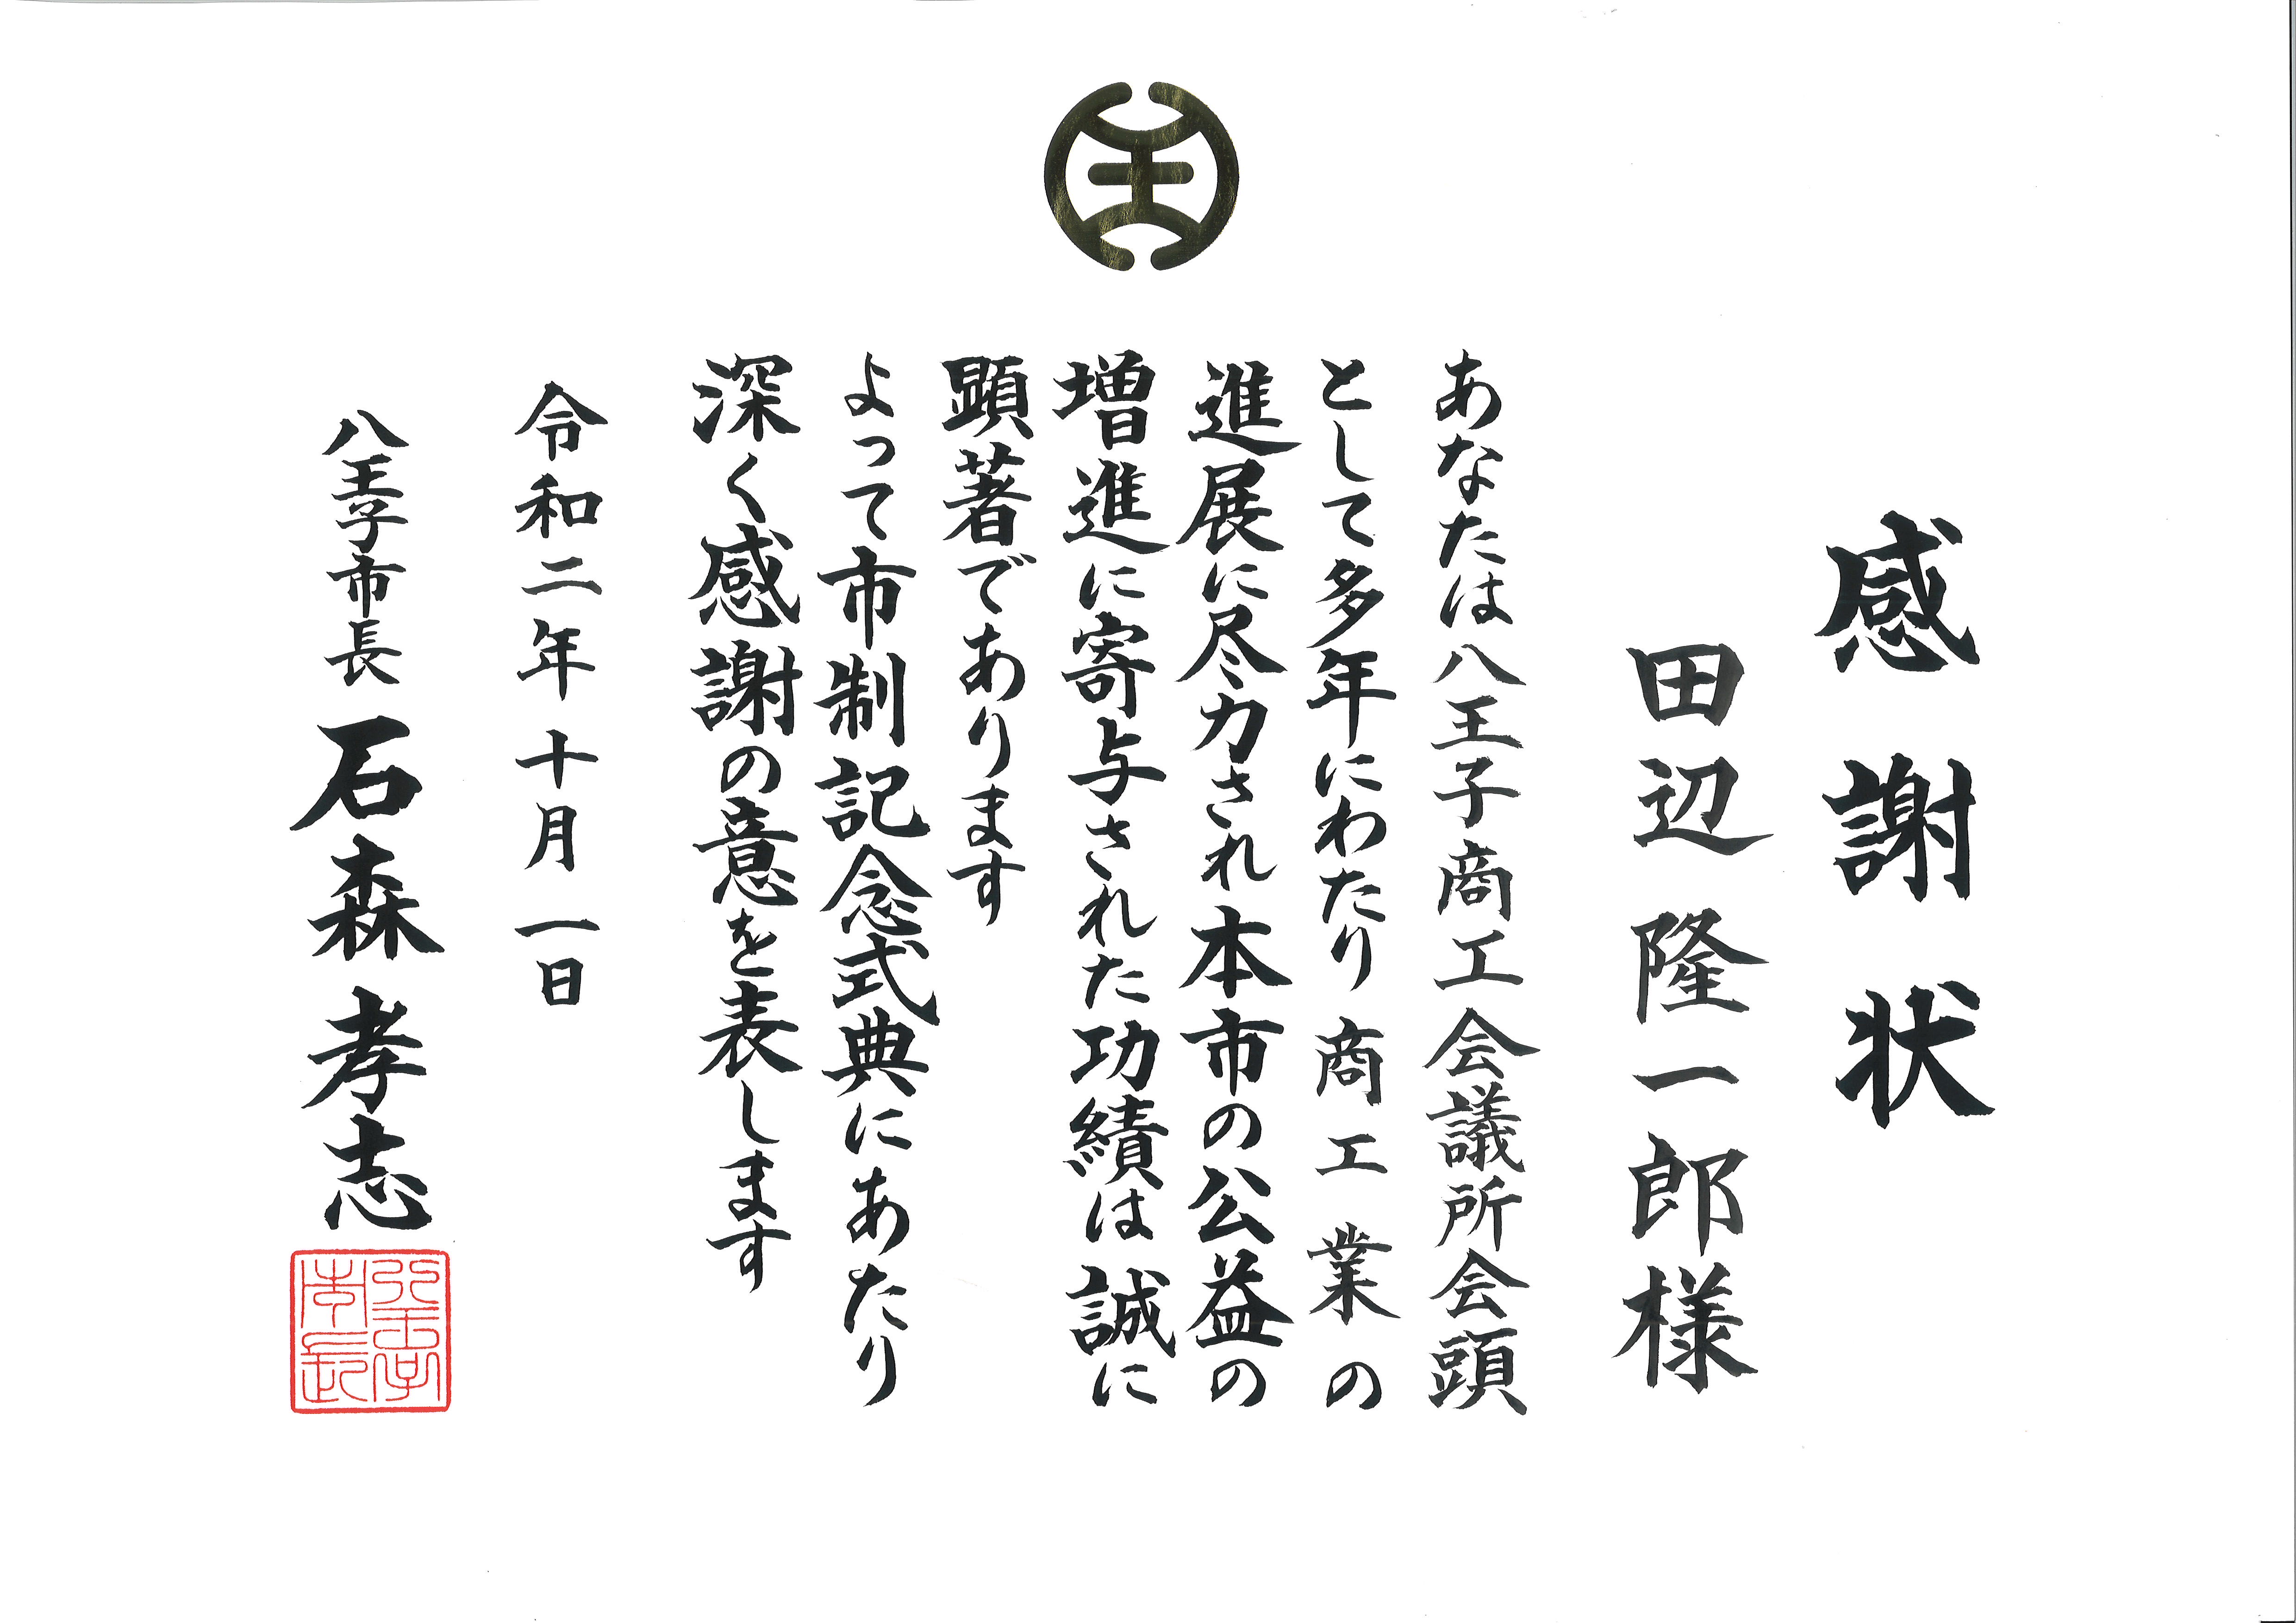 感謝状
田辺隆一郎様
あなたは八王子商工会議所会頭
として多年にわたり商工業の
進展に尽力され本市の公益の
増進に寄与された功績は誠に
顕著であります
よって市制記念式典にあたり
深く感謝の意を表します
令和二年十月一日
八王子市長 石森孝志
八王子
市長